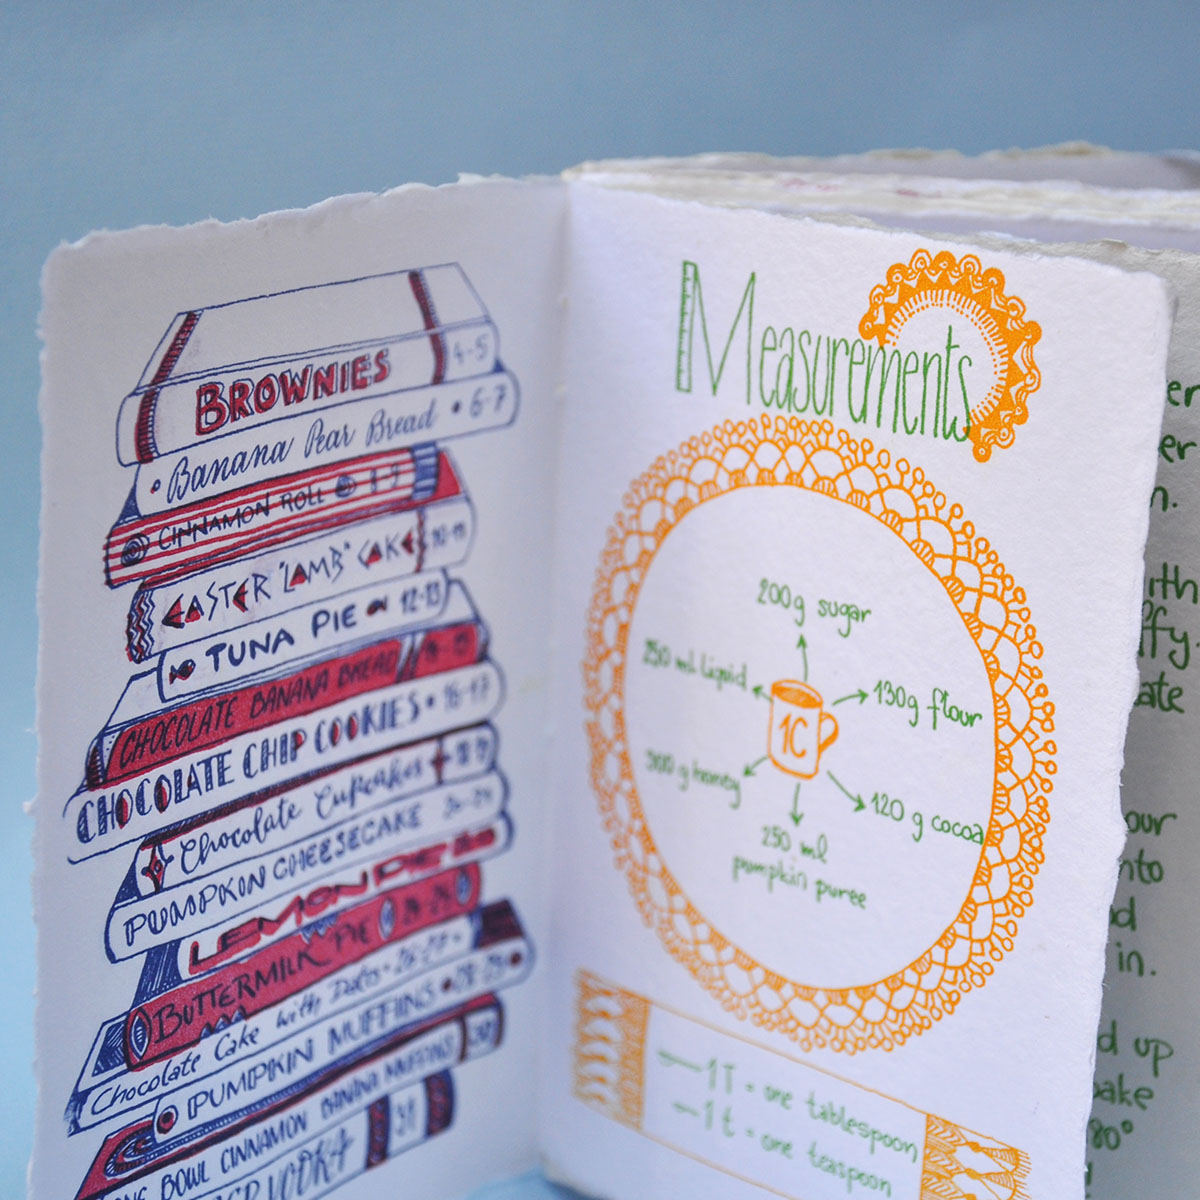 BROWNIES 4-5
Banana Pear Bread • 6-7
CINNAMON ROLL
EASTER "LAMB" CAKE 10-11
TUNA PIE 12-13
CHOCOLATE BANANA BREAD 14-15
CHOCOLATE CHIP COOKIES • 16-17
Chocolate Cupcakes 18-19
PUMPKIN CHEESECAKE
LEMON PIE
BUTTERMILK PIE 24-25
Chocolate Cake with Dates • 26-27
PUMPKIN MUFFINS • 28-29
ONE BOWL CINNAMON BANANA MUFFINS 30
VODKA 31
Measurements
200g sugar
250 ml liquid
130g flour
1C
300 g honey
120 g cocoa
250 ml
pumpkin puree
1T = one tablespoon
1t = one teaspoon
er
er
n.
ith
ffy.
ate
our
nto
d
in.
d up
bake
80°